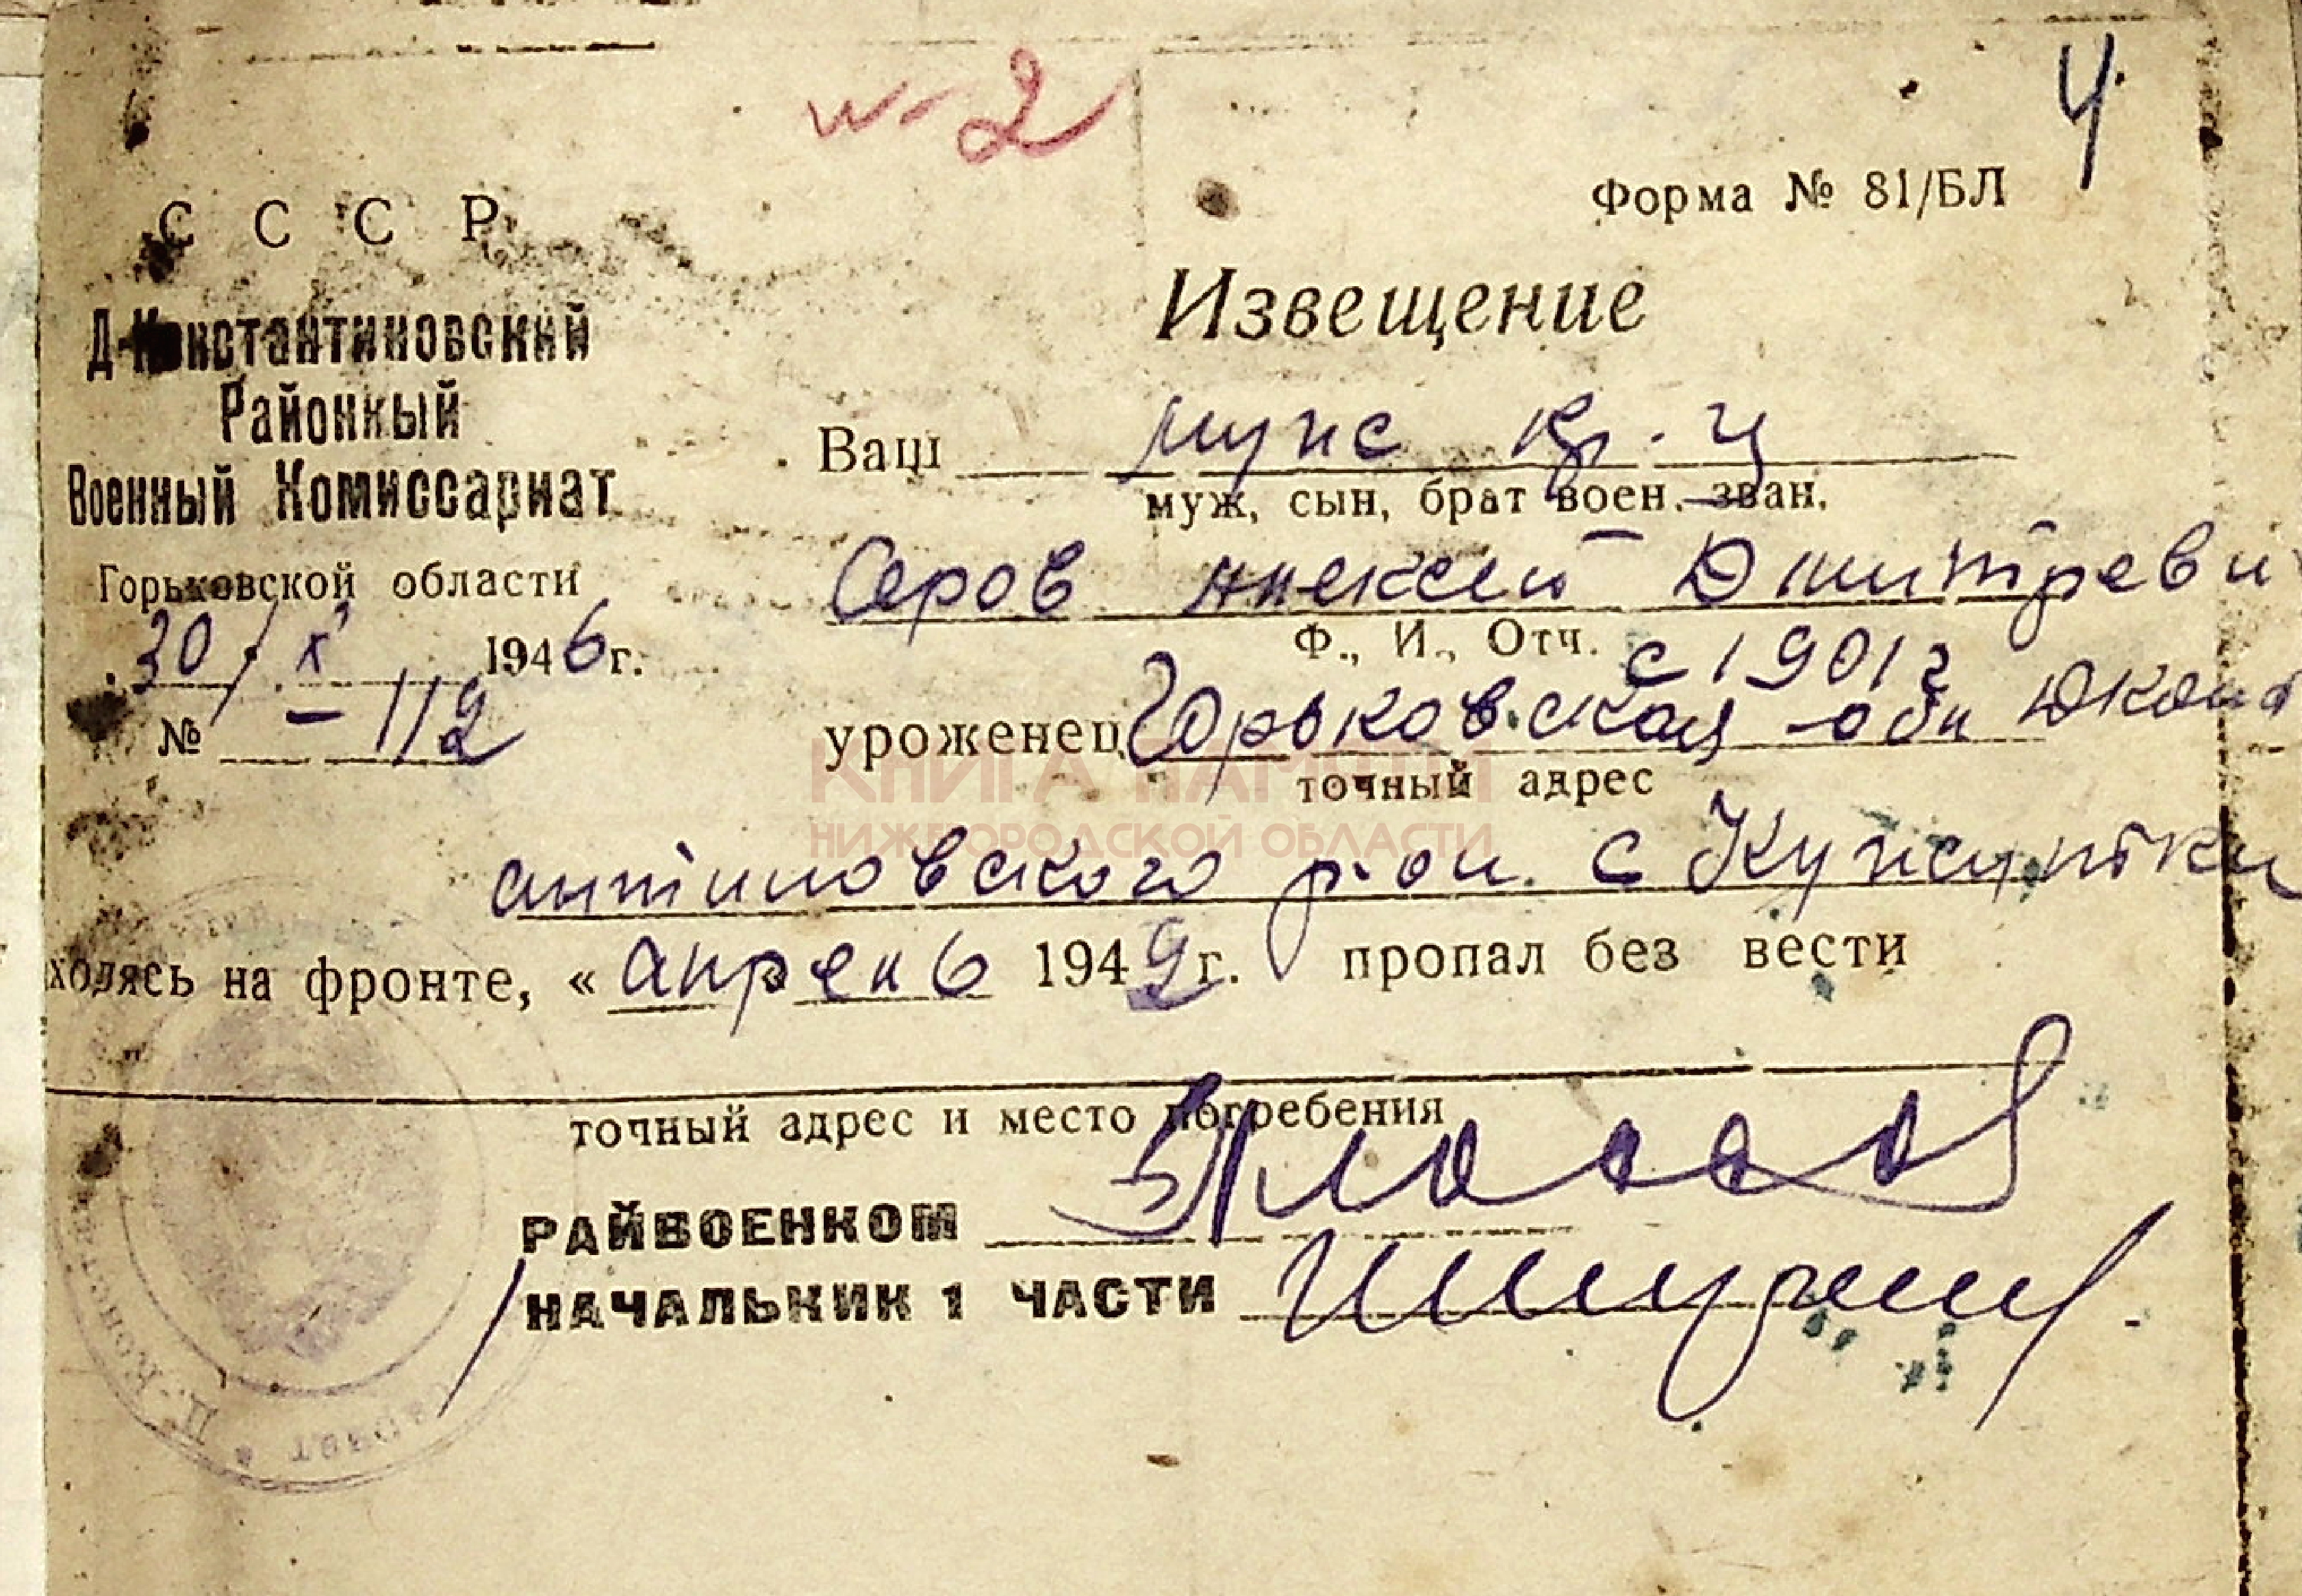 № 2
4
СССР
Форма № 81/БЛ
Д-Константиновский
Районный
Военный Комиссариат
Горьковской области
30/X 1946г.
№ -112
Извещение
Ваш муж кр-ц
муж, сын, брат воен. зван.
Серов Алексей Дмитреви
Ф., И., Отч. с 1901г
уроженец Горьковская обл Дконст
точный адрес
КНИГА ПАМЯТИ
НИЖЕГОРОДСКОЙ ОБЛАСТИ
антиновского р-он. с Кужутки
ходясь на фронте, « апрель 1942г. пропал без вести
точный адрес и место погребения
РАЙВОЕНКОМ
НАЧАЛЬНИК 1 ЧАСТИ